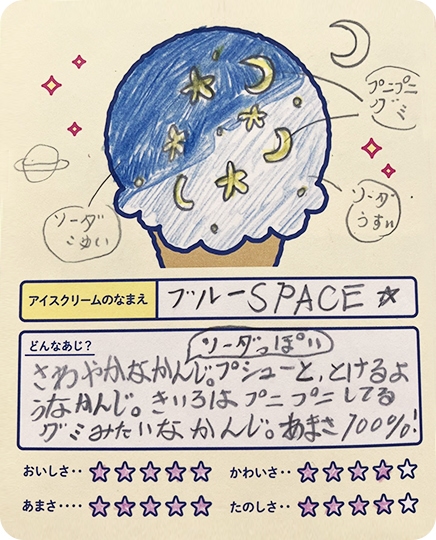 プニプニ
グミ
ソーダ
こゆい
ソーダ
うすい
アイスクリームのなまえ
ブルーSPACE☆
どんなあじ?
ソーダっぽい
さわやかなかんじ。プシューと、とけるよ
うなかんじ。きいろはプニプニしてる
グミみたいなかんじ。あまさ100%!
おいしさ‥★★★★★
かわいさ‥★★★★☆
あまさ‥‥★★★★★
たのしさ‥★★★★☆